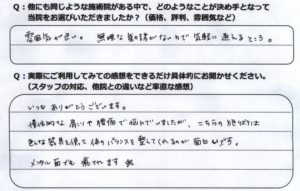 Q：他にも同じような施術院がある中で、どのようなことが決め手となって
当院をお選びいただきましたか？（価格、評判、雰囲気など）
雰囲気が良い。無理な勧誘がないので気軽に通えるところ。
Q：実際にご利用してみての感想をできるだけ具体的にお聞かせください。
（スタッフの対応、他院との違いなど率直な感想）
いつもありがとうございます。
慢性的な肩こりや腰痛で悩んでいましたが、こちらの
色んな器具を使って体のバランスを整えてくれるのが面白いです。
メンタル面でも